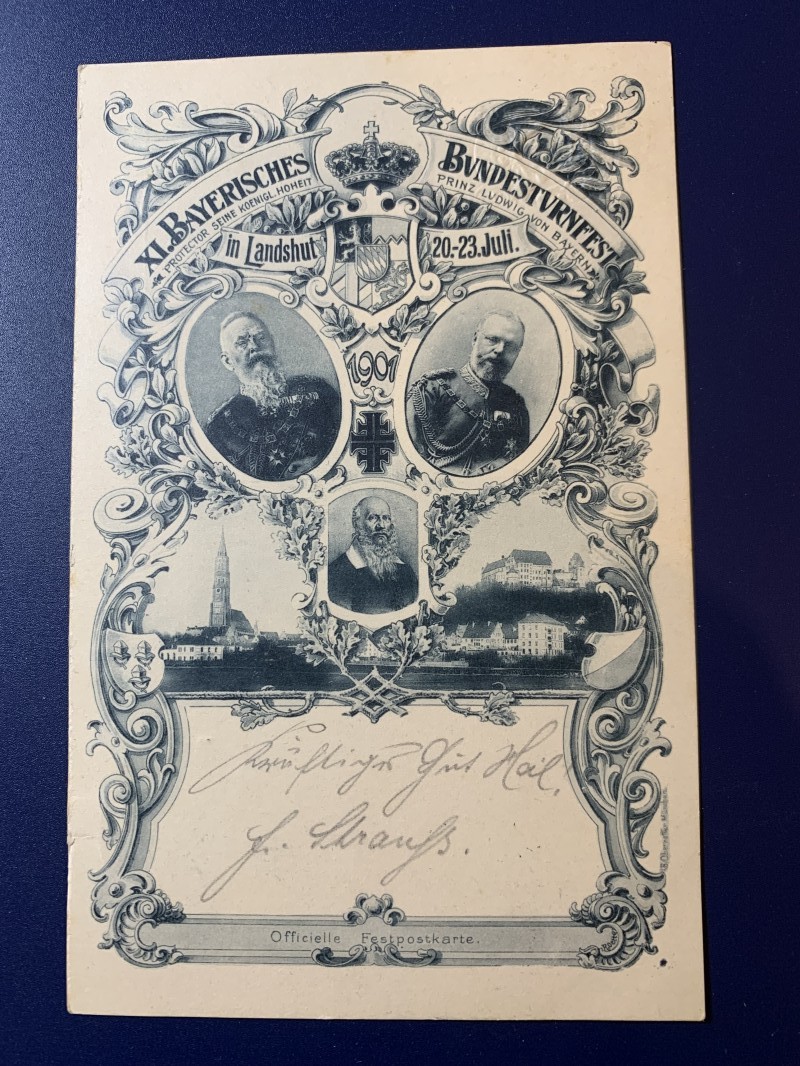 XI. BAYERISCHES BUNDESTURNFEST
PROTECTOR SEINE KOENIGL. HOHEIT PRINZ LUDWIG VON BAYERN
in Landshut 20.-23. Juli.
1901
Kräftiges Gut Heil!
F. Strauß.
Officielle Festpostkarte.